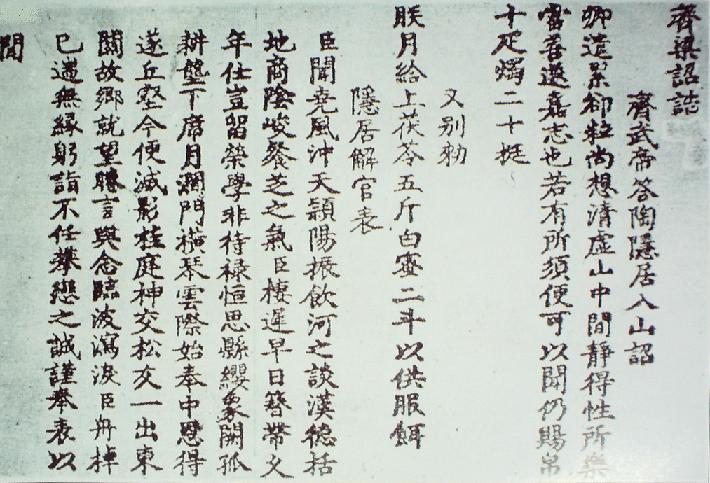 齊梁詔誥
齊武帝答陶隱居入山詔
卿遣累卻粒尚想清虛山中閒靜得性所樂
當善遂嘉志也若有所須便可以聞仍賜帛
十疋燭二十挺
又別勑
朕月給上茯苓五斤白蜜二斗以供服餌
隱居解官表
臣聞堯風沖天穎陽振飲河之談漢德括
地商陰峻餐芝之氣臣棲遲早日簪帶久
年仕豈留榮學非待祿恒思縣纓象闕孤
耕壟下席月澗門橫琴雲際始奉中恩得
遂丘壑今便滅影桂庭神交松友一出東
關故鄉就望睠言興念臨波瀉淚臣舟棹
已遄無緣躬詣不任攀戀之誠謹奉表以
聞